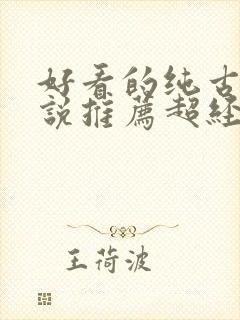 好看的纯古
說推薦超經
王荷波